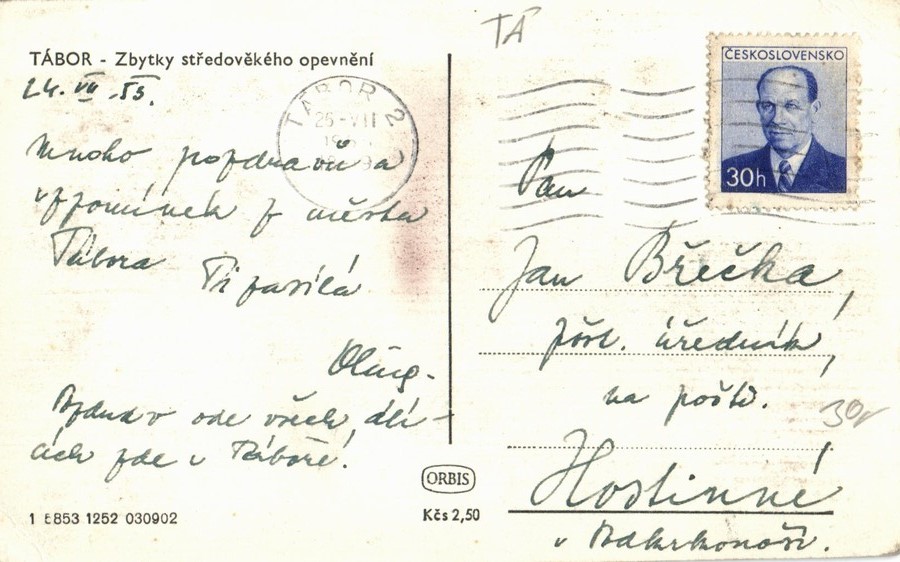 TÁBOR - Zbytky středověkého opevnění
24. VII. 55.
Mnoho pozdravů a
vzpomínek z města
Tábora
Ti zasílá
Pozdrav ode všech
zde v Táboře!
1 6853 1252 030902
ORBIS
Kčs 2,50
TÁ
TÁBOR 2
25-VII
ČESKOSLOVENSKO
30h
Pan
Jan Břečka,
pošt. úředník,
na poště.
30,-
Hostinné
v Podkrkonoší.